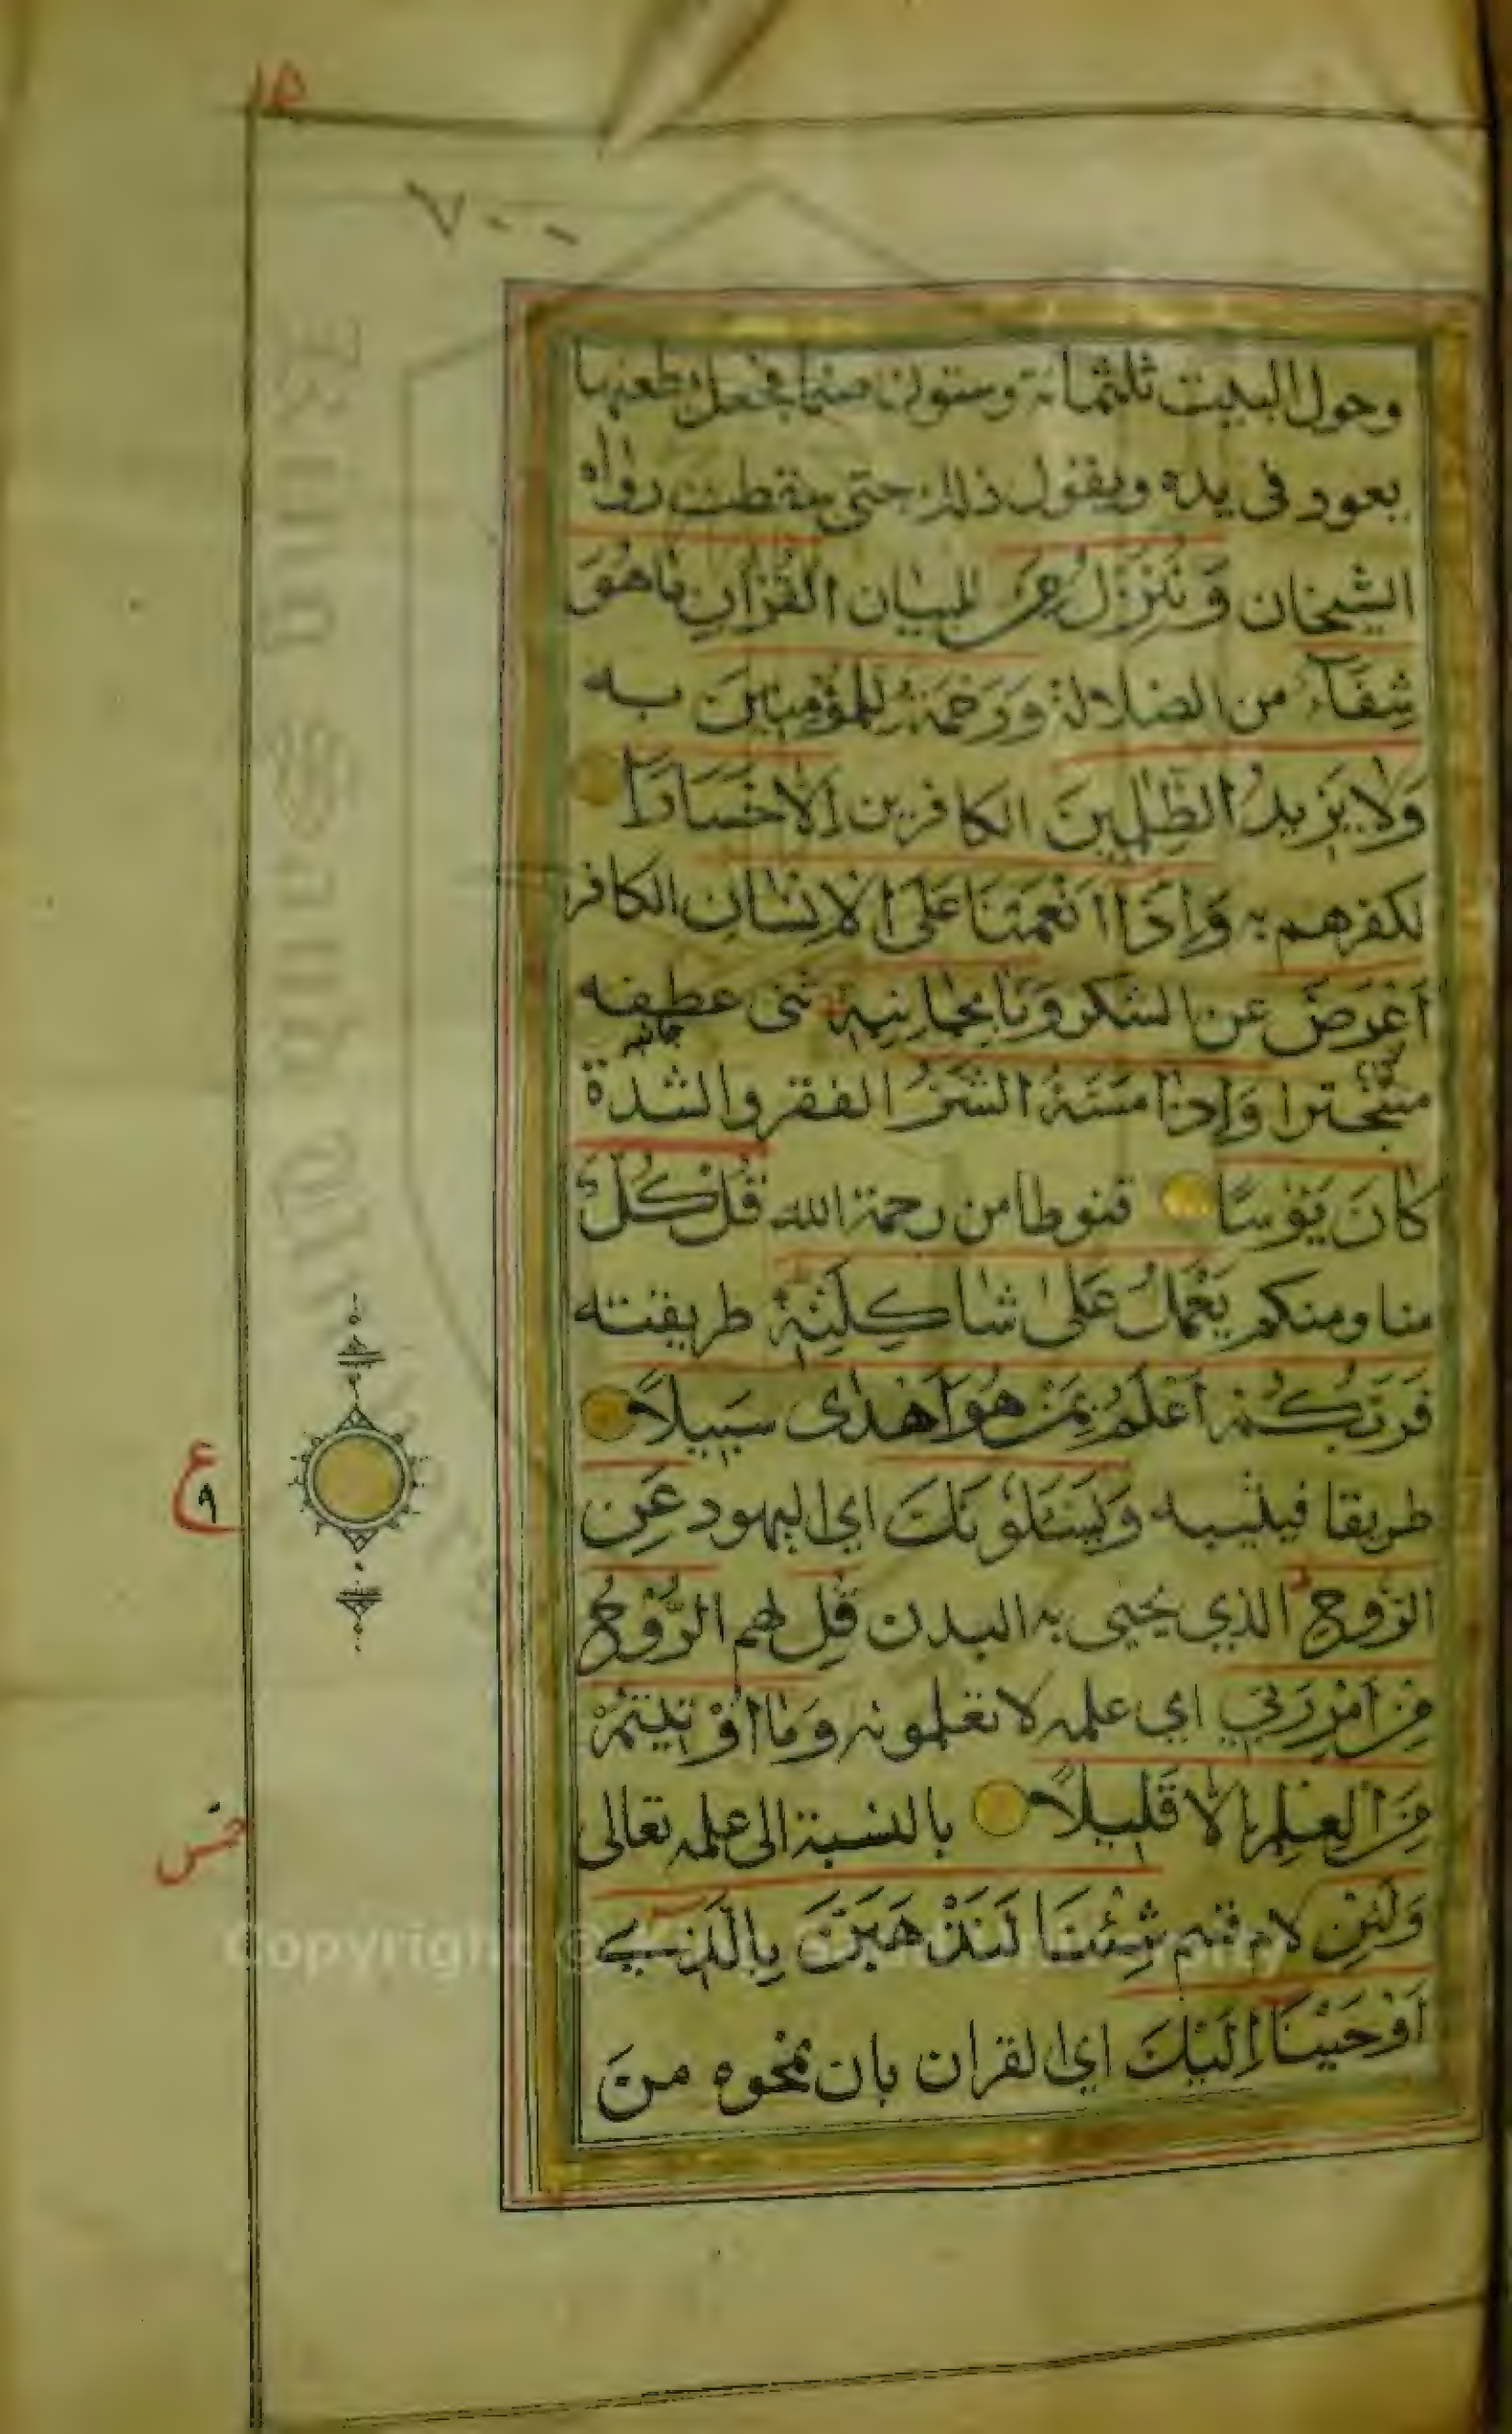 ١٥
٧٠٠
وحول البيت ثلثمائة وستون صنما فجعل يطعنها
بعود في يده ويقول ذلك حتى سقطت رواه
الشيخان وَنُنَزِّلُ من للبيان القُرْاٰنِ مَا هُوَ
شِفَآءٌ من الضلالة وَرَحْمَةٌ لِلْمُؤْمِنِينَ به
وَلَا يَزِيدُ الظّٰلِمِينَ الكافرين اِلَّا خَسَارًا
لكفرهم به وَاِذَا اَنْعَمْنَا عَلَى الْاِنْسَانِ الكافر
اَعْرَضَ عن الشكر وَنَاٰ بِجَانِبِهٖ ثنى عطفه
جانبه
متبخترا وَاِذَا مَسَّهُ الشَّرُّ الفقر والشدة
كَانَ يَؤُسًا قنوطا من رحمة الله قُلْ كُلٌّ
منا ومنكم يَعْمَلُ عَلٰى شَاكِلَتِهٖ طريقته
فَرَبُّكُمْ اَعْلَمُ بِمَنْ هُوَ اَهْدٰى سَبِيلًا
طريقا فيثيبه وَيَسْئَلُونَكَ اي اليهود عَنِ
الرُّوحِ الذي يحيى به البدن قُلِ لهم الرُّوحُ
مِنْ اَمْرِ رَبِّي اي علمه لا تعلمونه وَمَا اُوْتِيتُمْ
مِنَ الْعِلْمِ اِلَّا قَلِيلًا بالنسبة الى علمه تعالى
وَلَئِنْ لام قسم شِئْنَا لَنَذْهَبَنَّ بِالَّذِي
اَوْحَيْنَا اِلَيْكَ اي القران بان نمحوه من
ع
٩
خمس
Copyright ©